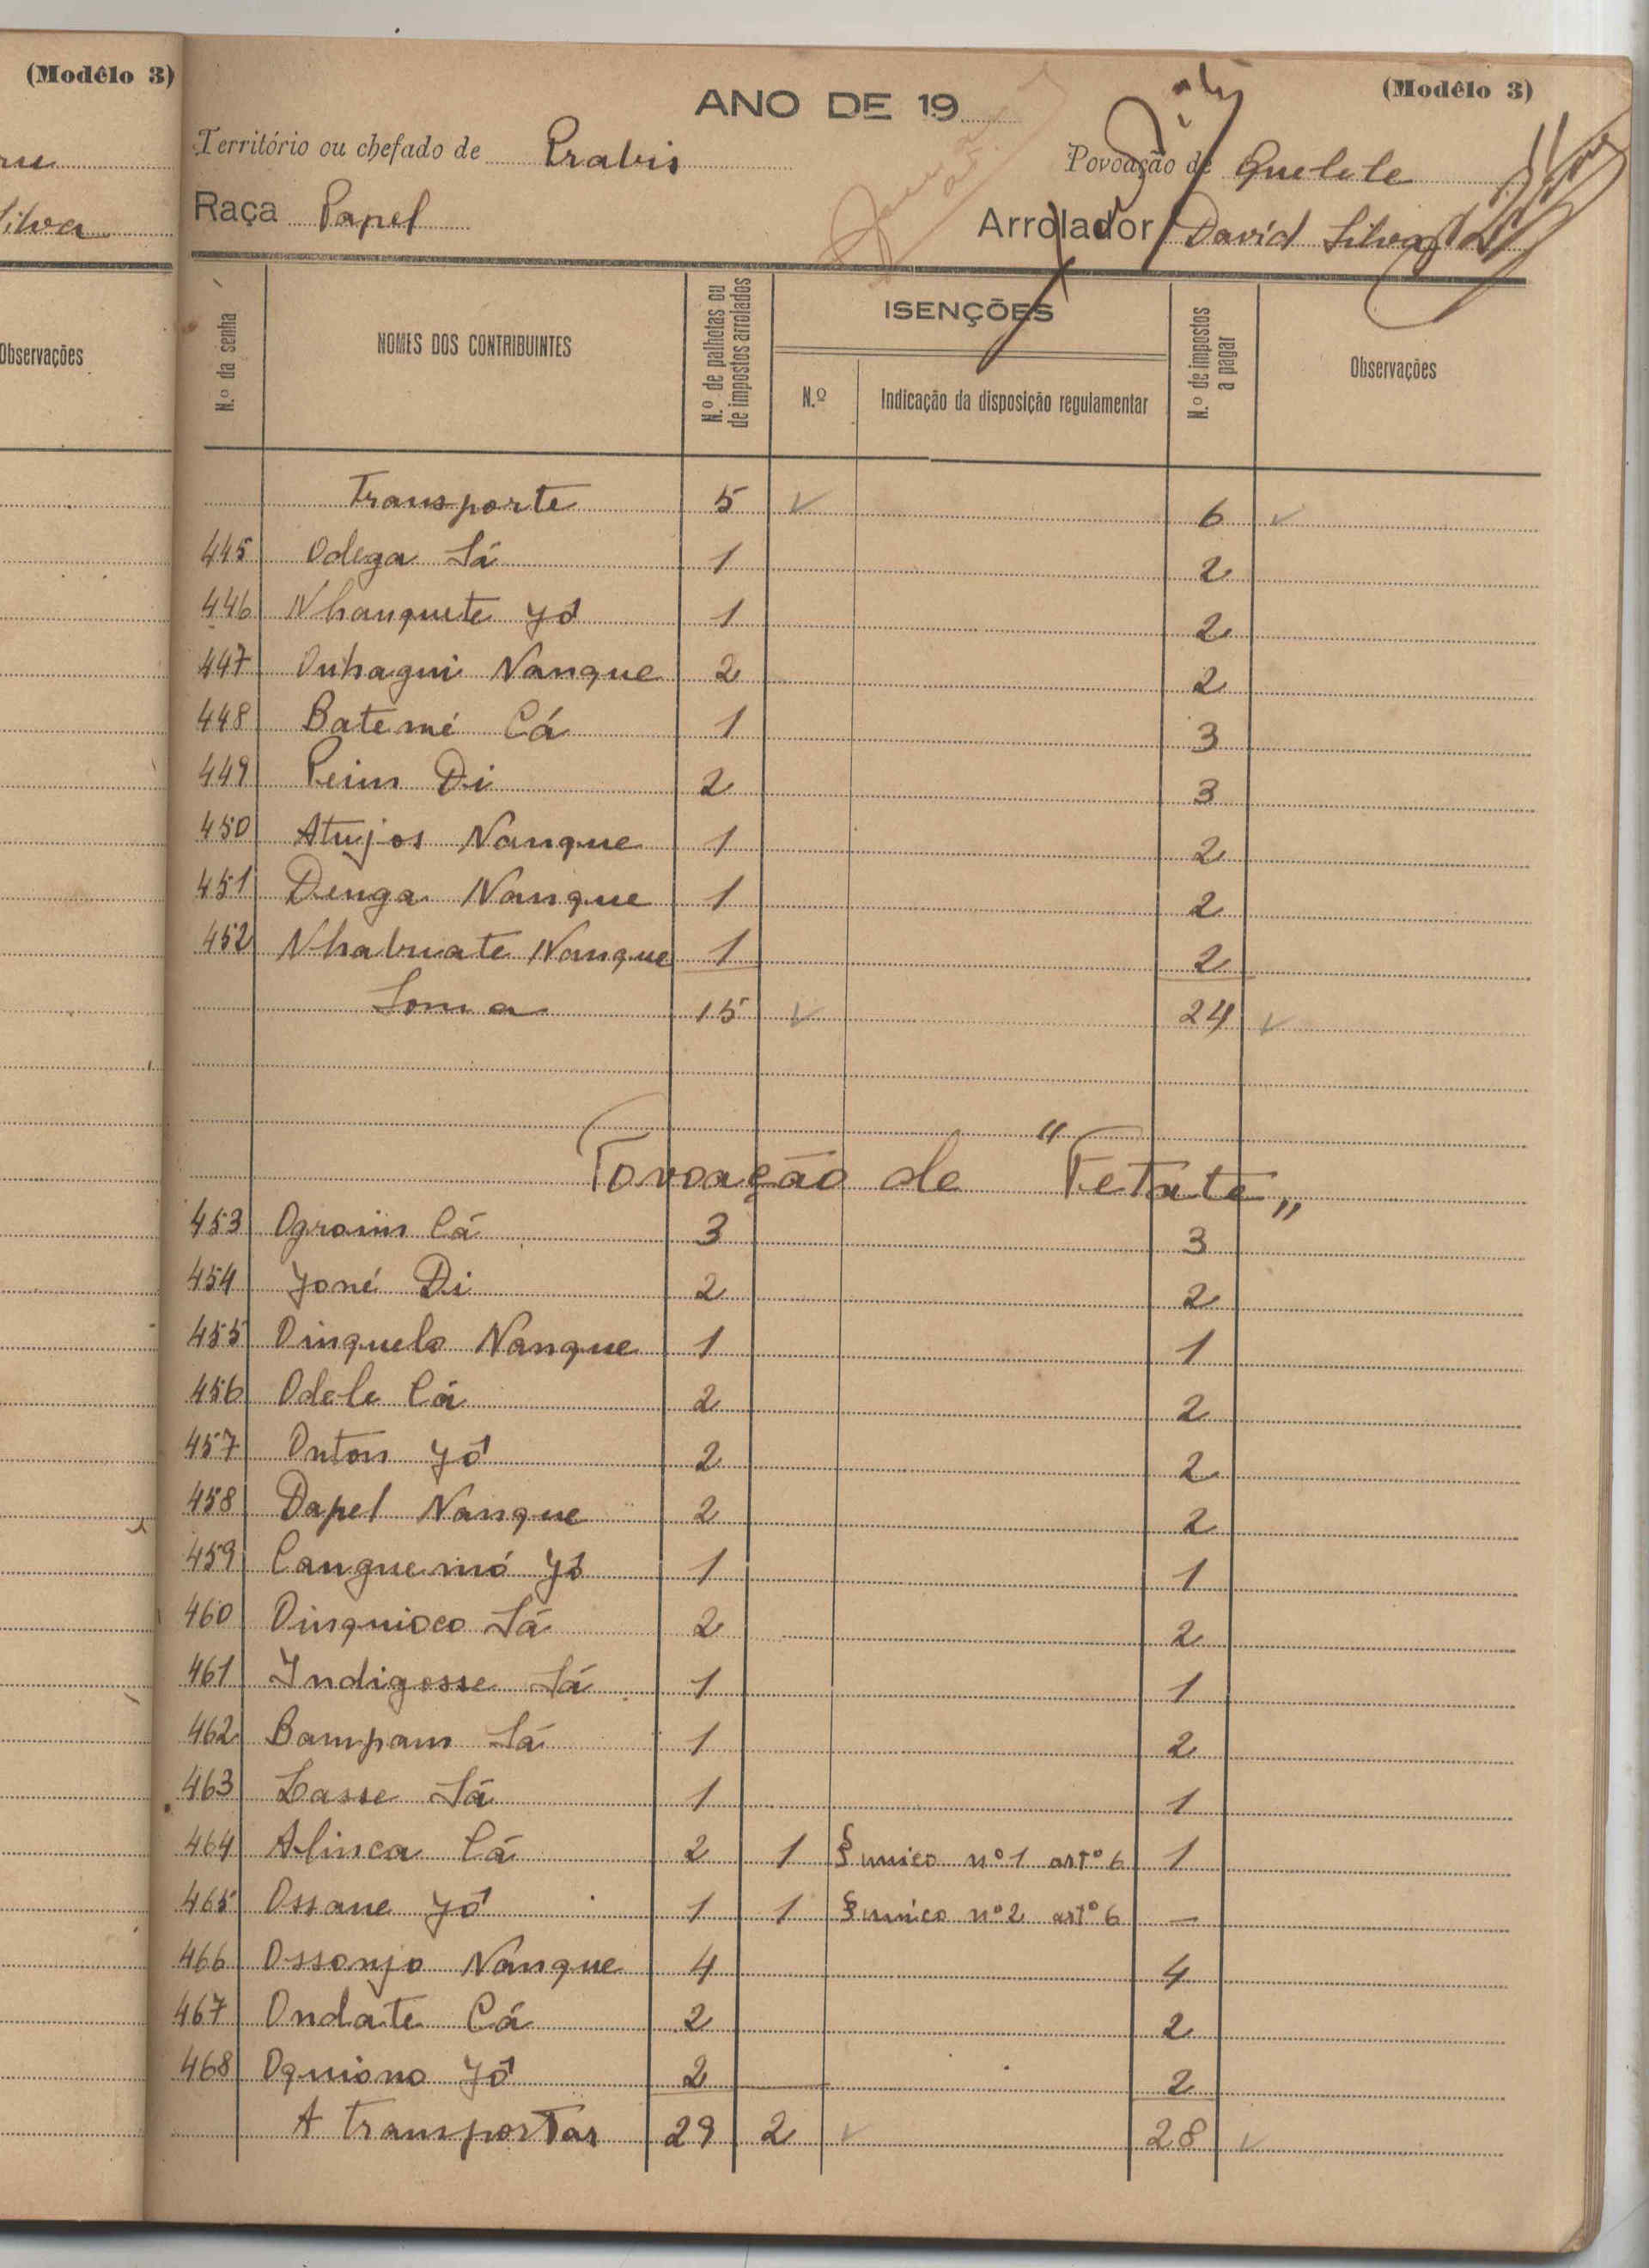 (Modêlo 3)
Silva
Observações
ANO DE 19
(Modêlo 3)
Território ou chefado de Prabis
Povoação de Quelele
Raça Papel
Arrolador David Silva
N.º da senha
NOMES DOS CONTRIBUINTES
N.º de palhotas ou de impostos arrolados
ISENÇÕES
N.º
Indicação da disposição regulamentar
N.º de impostos a pagar
Observações
Transporte 5 6
445 Odega Sá 1 2
446 Nhanquete Yó 1 2
447 Onhagui Nanque 2 2
448 Batemé Cá 1 3
449 Peim Di 2 3
450 Atujos Nanque 1 2
451 Denga Nanque 1 2
452 Nhabuate Nanque 1 2
Soma 15 24
Povoação de "Tetate"
453 Ogroim Cá 3 3
454 Yoné Di 2 2
455 Dinquelo Nanque 1 1
456 Odele Cá 2 2
457 Onton Yó 2 2
458 Dapel Nanque 2 2
459 Canguemó Yó 1 1
460 Dinquioco Sá 2 2
461 Indigosse Sá 1 1
462 Bampam Sá 1 2
463 Lasse Sá 1 1
464 Alinca Cá 2 1 § unico nº 1 artº 6 1
465 Ossane Yó 1 1 § unico nº 2 artº 6 —
466 Ossonjo Nanque 4 4
467 Ondate Cá 2 2
468 Oquiono Yó 2 2
A transportar 29 2 28